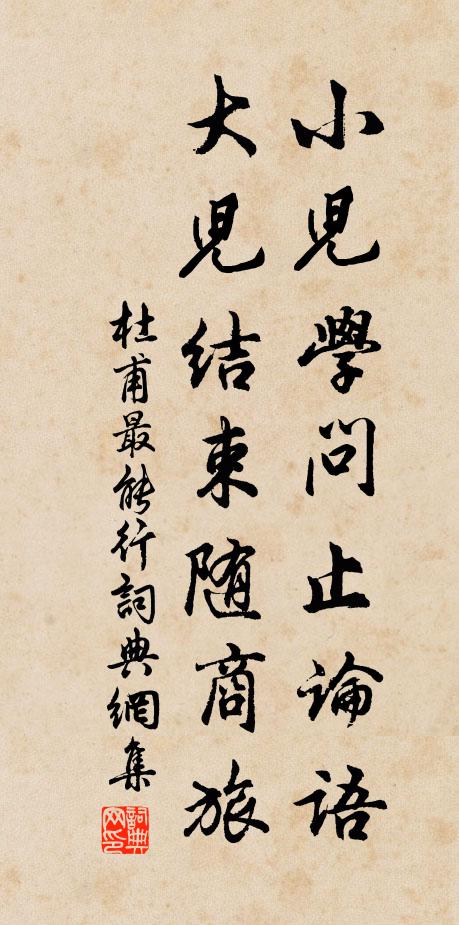 小児學問止論語
大児結束随商旅
杜甫最能行詞典網集
詞典網印